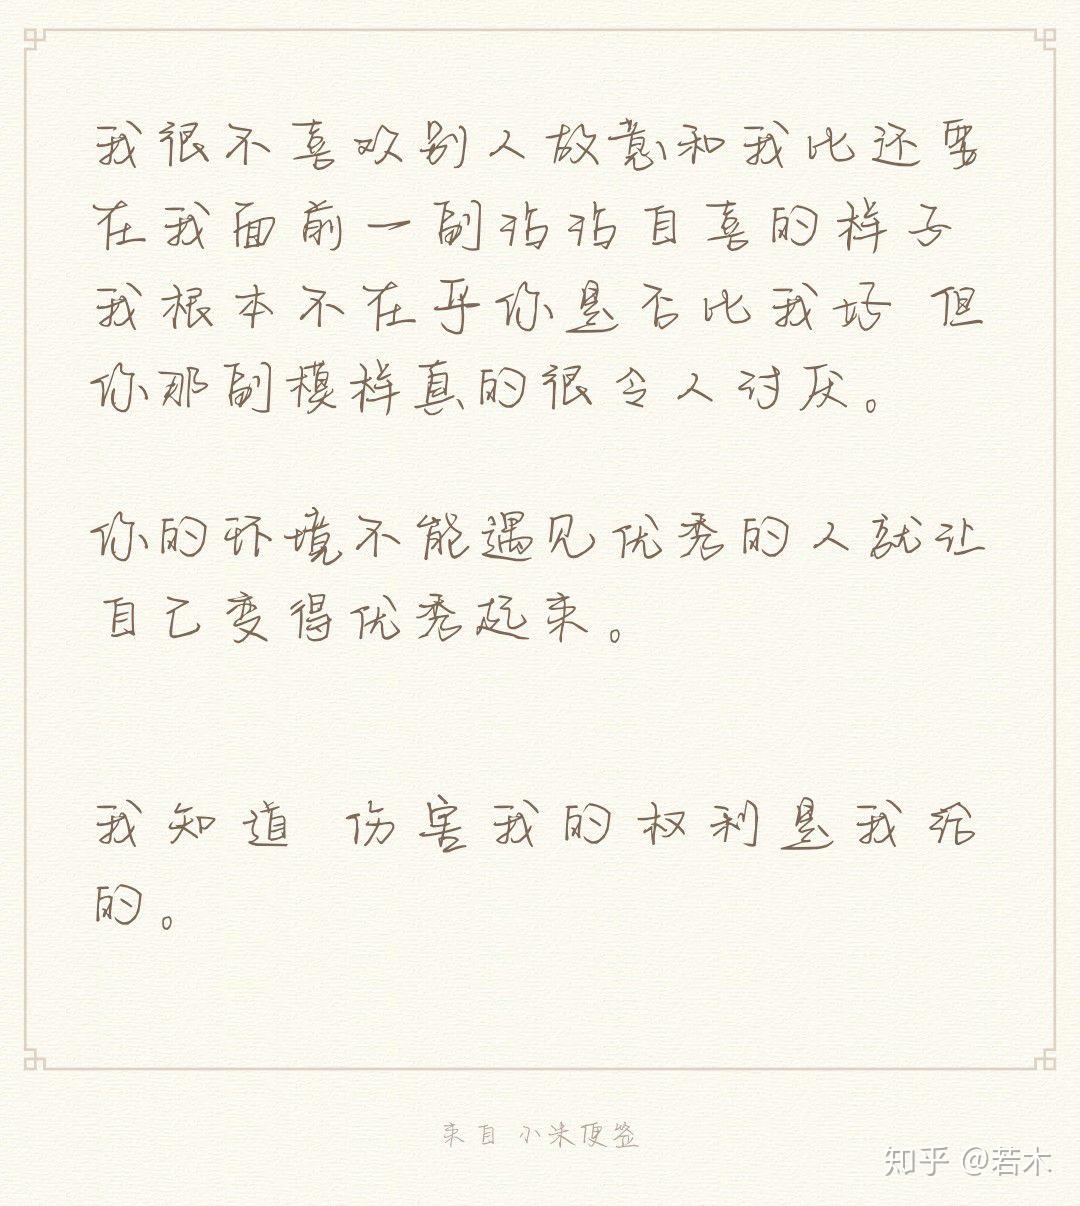 我很不喜欢别人故意和我比还要
在我面前一副沾沾自喜的样子
我根本不在乎你是否比我好 但
你那副模样真的很令人讨厌。
你的环境不能遇见优秀的人就让
自己变得优秀起来。
我知道 伤害我的权利是我给
的。
来自 小米便签
知乎 @若木